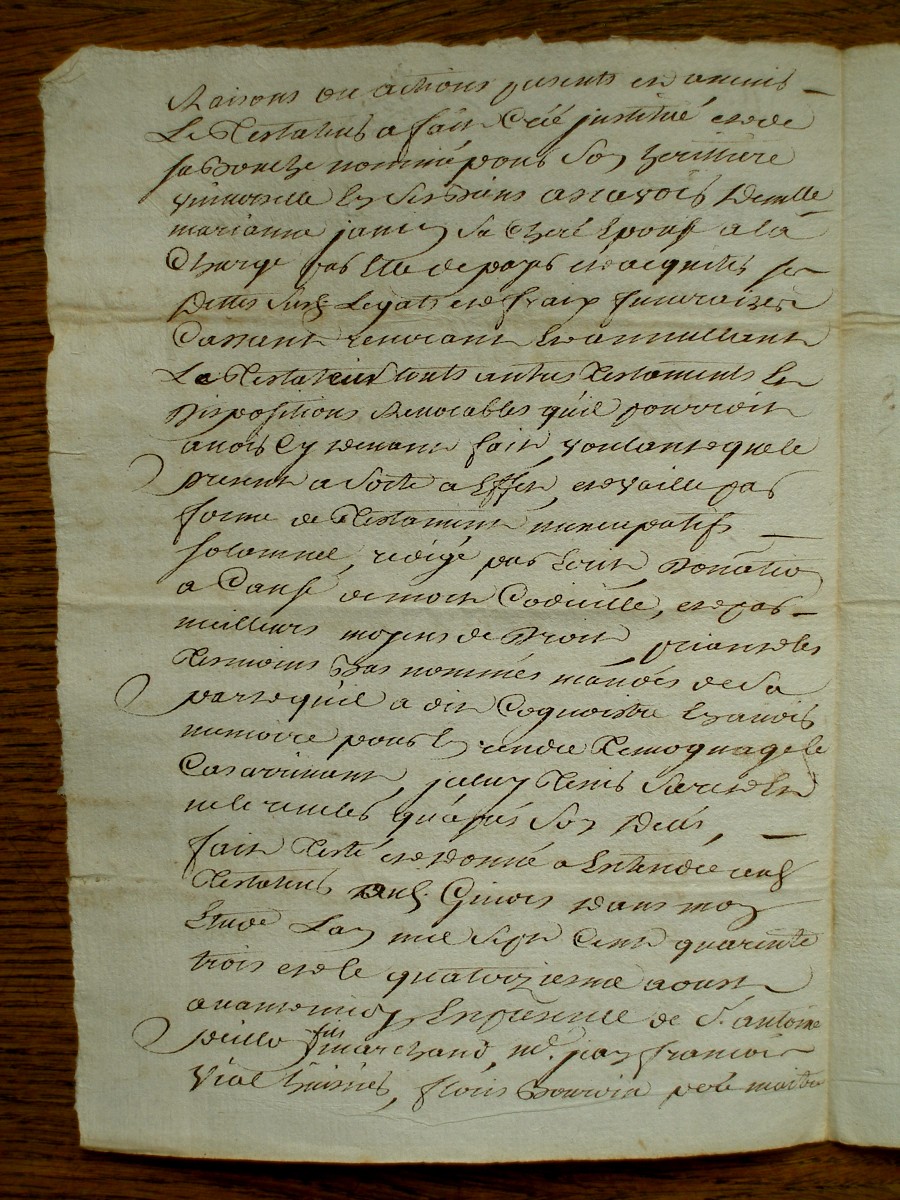 Raisons ou actions presents et avenir
Le Testateur a fait Créé institué et de
sa Bouche nommé pour Son heritiere
Universelle En Ses Biens a scavoir Demlle
marianne Sa Chere Epouse a la
Charge par Elle de payer et acquiter ses
Dettes Legats et fraix funeraires
Cassant revocant Et annullant
Le Testateur touts autres Testaments Et
Dispositions Revocables qu'il pourroit
avoir Cy devant fait voulant que le
present a Sorte a Effet, et vaille par
forme de Testament nuncupatif
Solamnel, redigé par Ecrit Donation
a Cause de mort Codicille, et par
meilleurs moyens de Droit priant les
Tesmoins Bas nommés mandés de Sa
part et qu'il a dit Cognoistre En avoir
memoire pour En rendre Temognage le
Cas arrivant, Tenir Secret Et
ne le reveler qu'apres Son Deces,
fait Testé et donné a Entendre aud
Testateur aud. Givors dans mon
Etude L'an mil Sept Cent quarente
trois et le quatorziesme aoust
avant midy En presence de Sr. antoine
fils marchand, Me. jean francois
Vial huissier, pere maitre